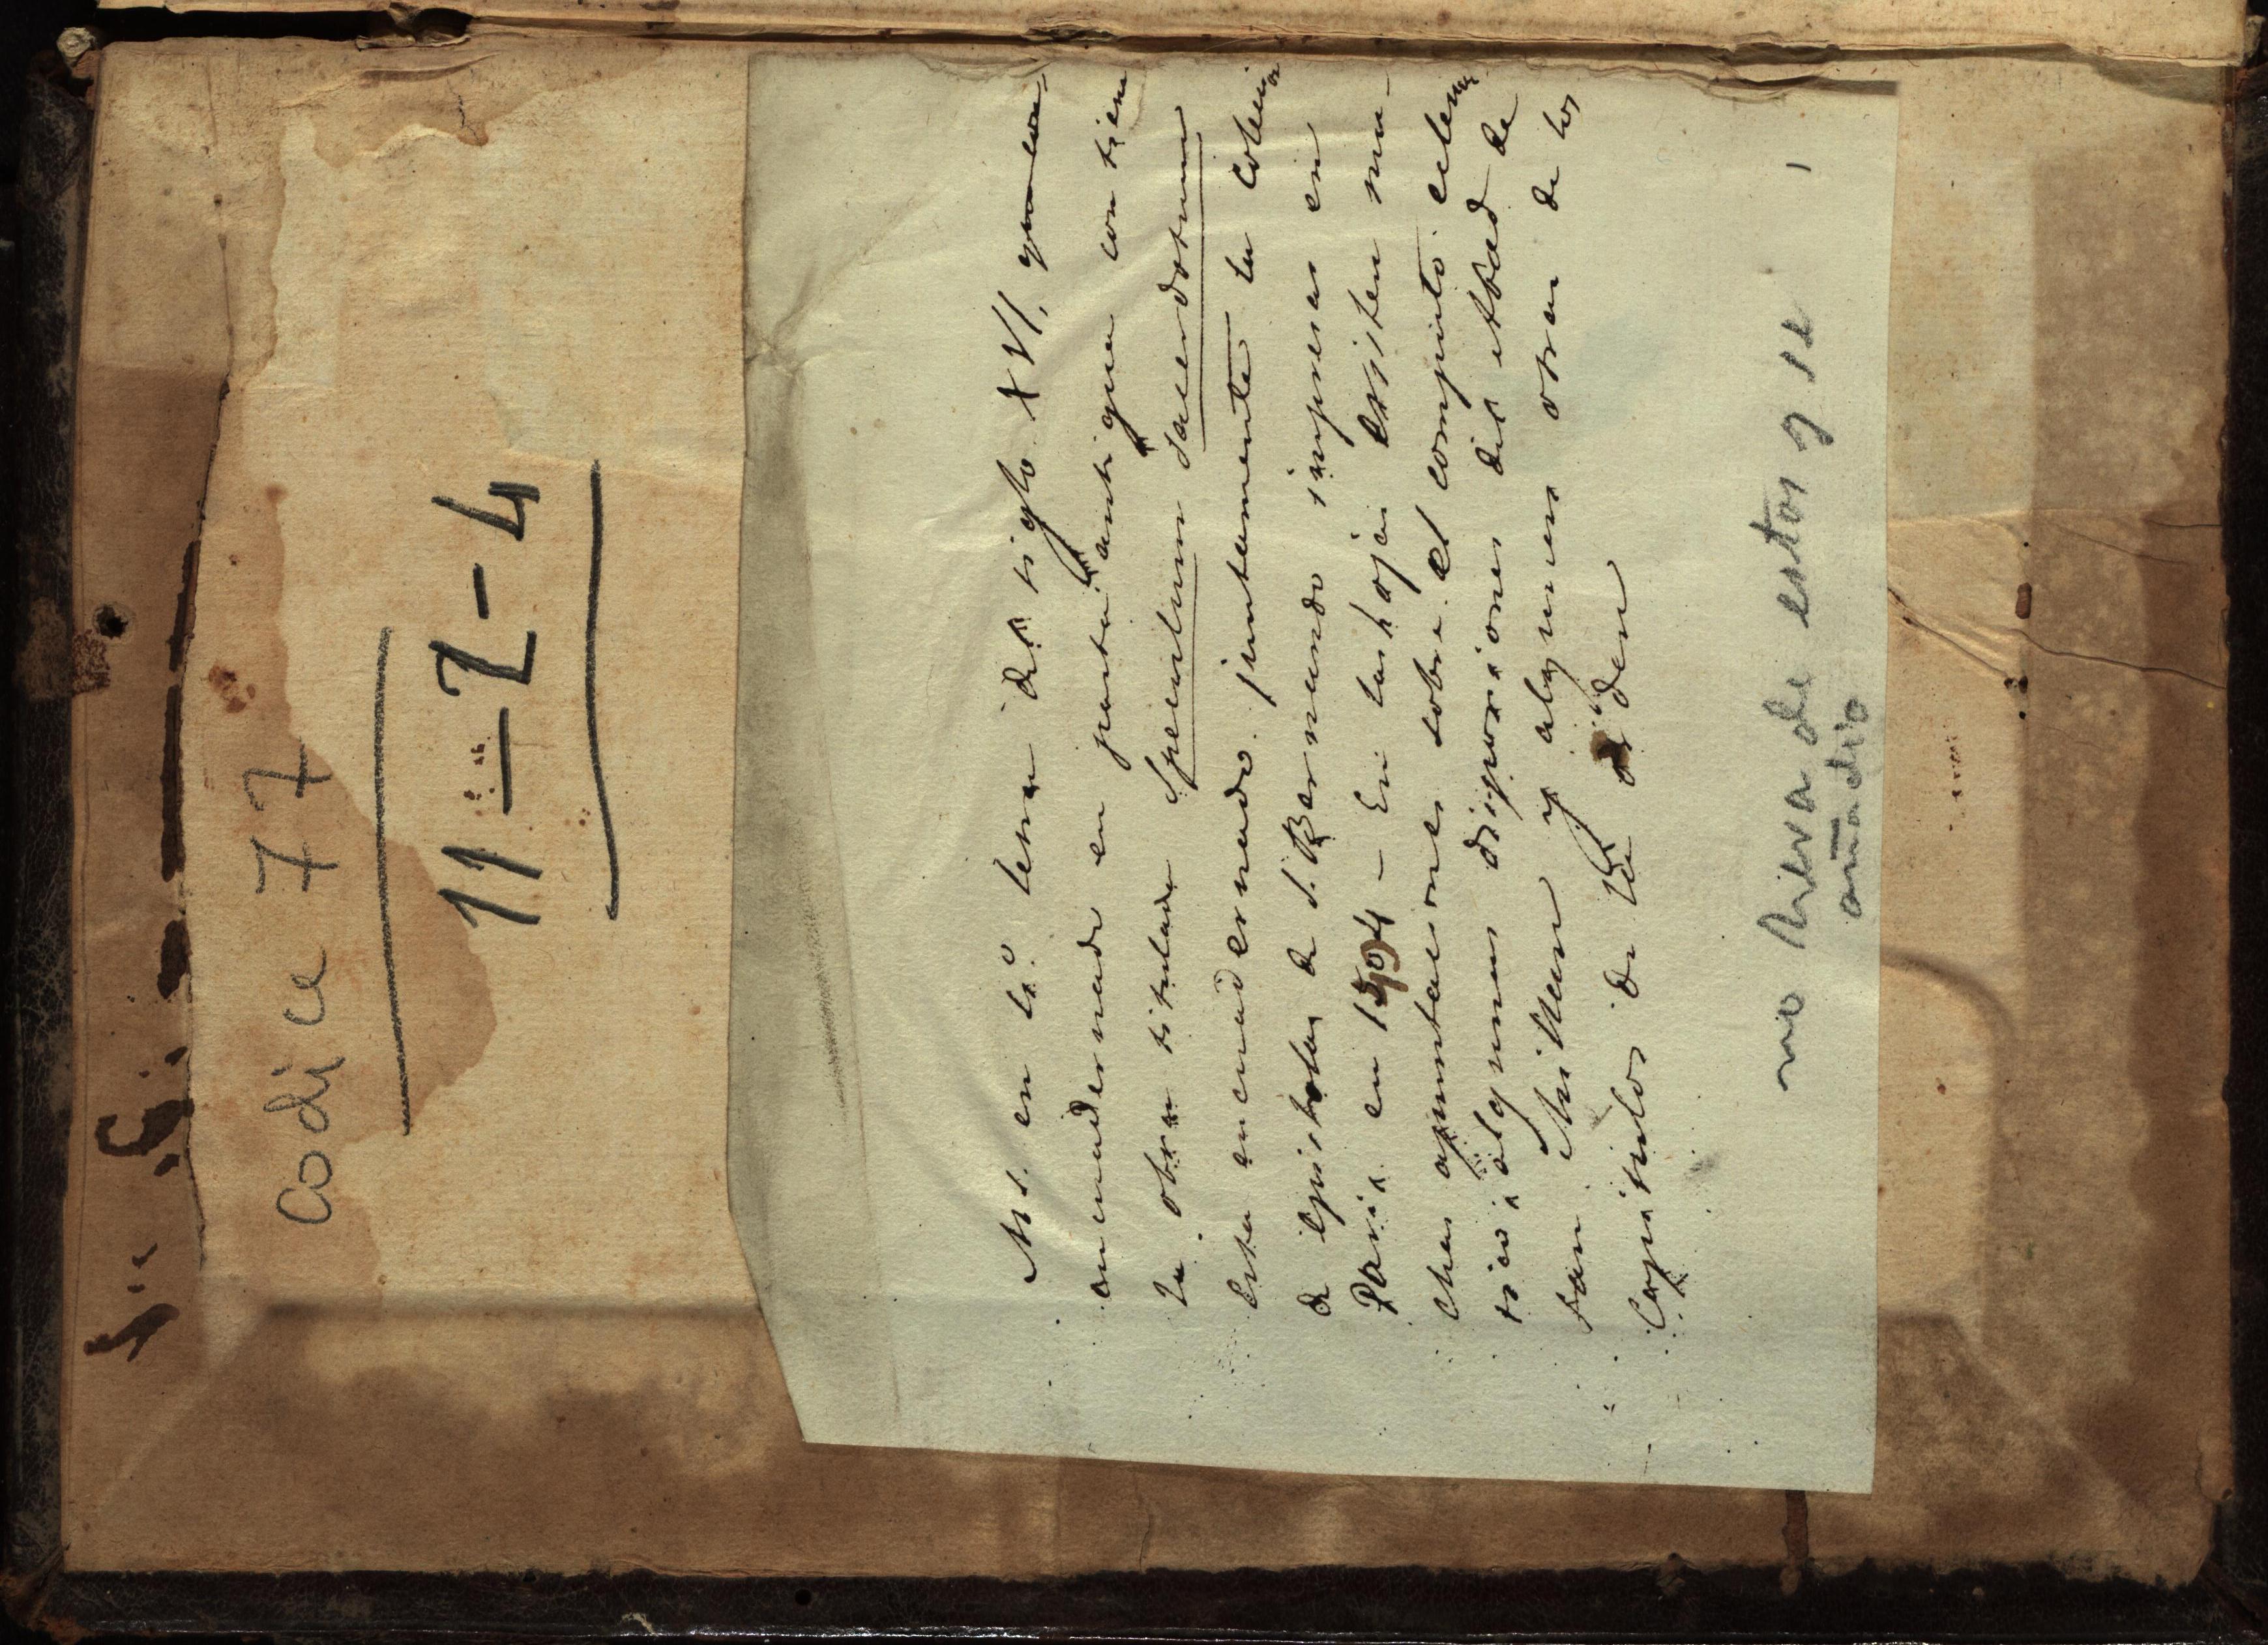 Codice 77
11-2-4
Ms. en 4.º letra del siglo XVI, que con
encuadernado en pasta antigua contiene
la obra titulada Speculum Sacerdotum
Esta encuadernado juntamente la colecion
de epistolas de S. Bernardo impresas en
Paris en 1504 - En las hojas existen mu-
chas apuntaciones sobre el computo ecles
tico, algunas disposiciones del Abad de
San Millan y algunas otras de los
Capitulos de la orden
no lleva de estos y se
añadio